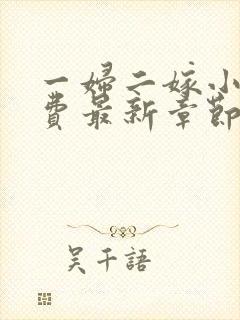 一婦二嫁小
費最新章節
吴千語